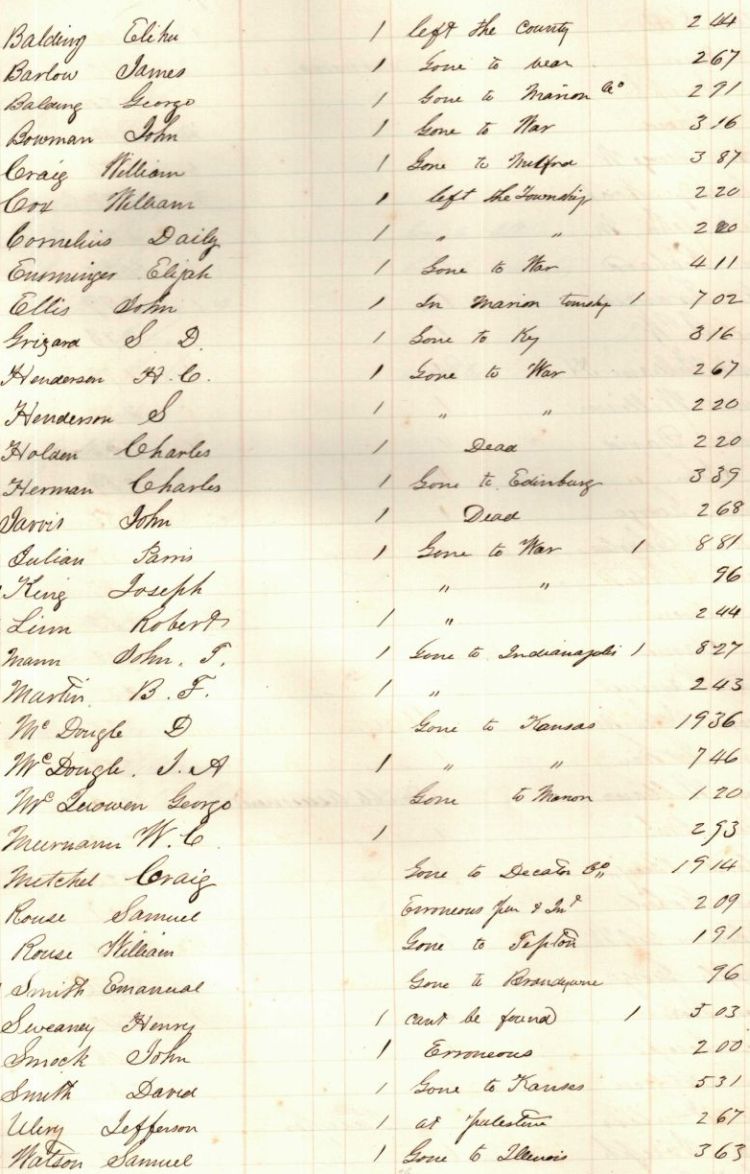 Balding Elihu 1 left the County 2 44
Barlow James 1 Gone to wear 2 67
Balding George 1 Gone to Marion Co 2 91
Bowman John 1 Gone to War 3 16
Craig William 1 Gone to Milford 3 87
Cox William 1 left the Township 2 20
Cornelius Daily 1 " " 2 20
Ensminger Elijah 1 Gone to War 4 11
Ellis John 1 In Marion townsp 1 7 02
Grizard S D. 1 Gone to Ky 3 16
Henderson H. C. 1 Gone to War 2 67
Henderson S 1 " " 2 20
Holden Charles 1 Dead 2 20
Herman Charles 1 Gone to Edinburg 3 39
Jarvis John 1 Dead 2 68
Julian Parris 1 Gone to War 1 8 81
King Joseph " " 96
Linn Robert 1 " 2 44
Mann John. T. 1 Gone to Indianapolis 1 8 27
Martin B. F. 1 " 2 43
Mc Dougle D Gone to Kansas 19 36
Mc Dougle. J. A 1 " " 7 46
Mc George Gone to Marion 1 20
W. C 1 2 93
Mitchel Craig Gone to Decator Co 19 14
Rouse Samuel Erroneous 2 09
Rouse William Gone to Tipton 1 91
Smith Emanual Gone to Brandywine 96
Sweaney Henry 1 cant be found 1 5 03
Smock John 1 Erroneous 2 00
Smith David 1 Gone to Kansas 5 31
Ulery Jefferson 1 at palestine 2 67
Watson Samuel 1 Gone to Illinois 3 63